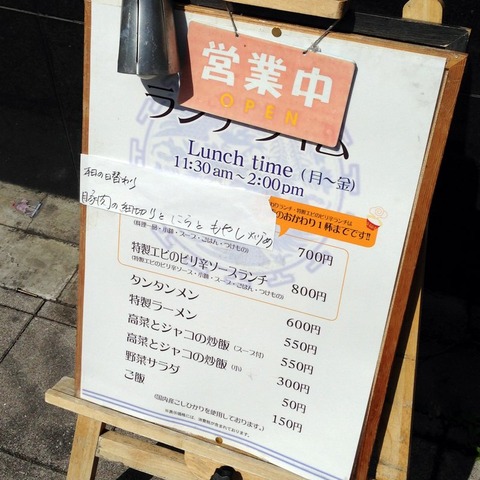 営業中
OPEN
ランチタイム
Lunch time (月～金)
11:30am～2:00pm
本日の日替わり
豚肉の細切りとにらともやし炒め
わりランチ・特製エビのピリ辛ランチは
のおかわり1杯までです!!
700円
(料理一品・小鉢・スープ・ごはん・つけもの)
特製エビのピリ辛ソースランチ 800円
(特製エビのピリ辛ソース・小鉢・スープ・ごはん・つけもの)
タンタンメン 600円
特製ラーメン 550円
高菜とジャコの炒飯(スープ付) 550円
高菜とジャコの炒飯(小) 300円
野菜サラダ 50円
ご飯 150円
(国内産こしひかりを使用しております。)
※表示価格には、消費税が含まれております。